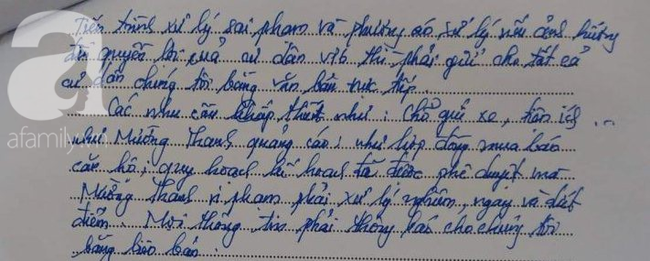 Tiến trình xử lý sai phạm và phương án xử lý nếu ảnh hưởng
đến quyền lợi của cư dân V76 thì phải gửi cho tất cả
cư dân chúng tôi bằng văn bản trực tiếp.
Các nhu cầu cấp thiết như: Chỗ gửi xe, tiện ích
như Mường Thanh quảng cáo; như hợp đồng mua bán
căn hộ, quy hoạch đã được phê duyệt mà
Mường Thanh vi phạm phải xử lý nghiêm, ngay và dứt
điểm. Mọi thông tin phải thông báo cho chúng tôi
bằng
a
afamily.vn